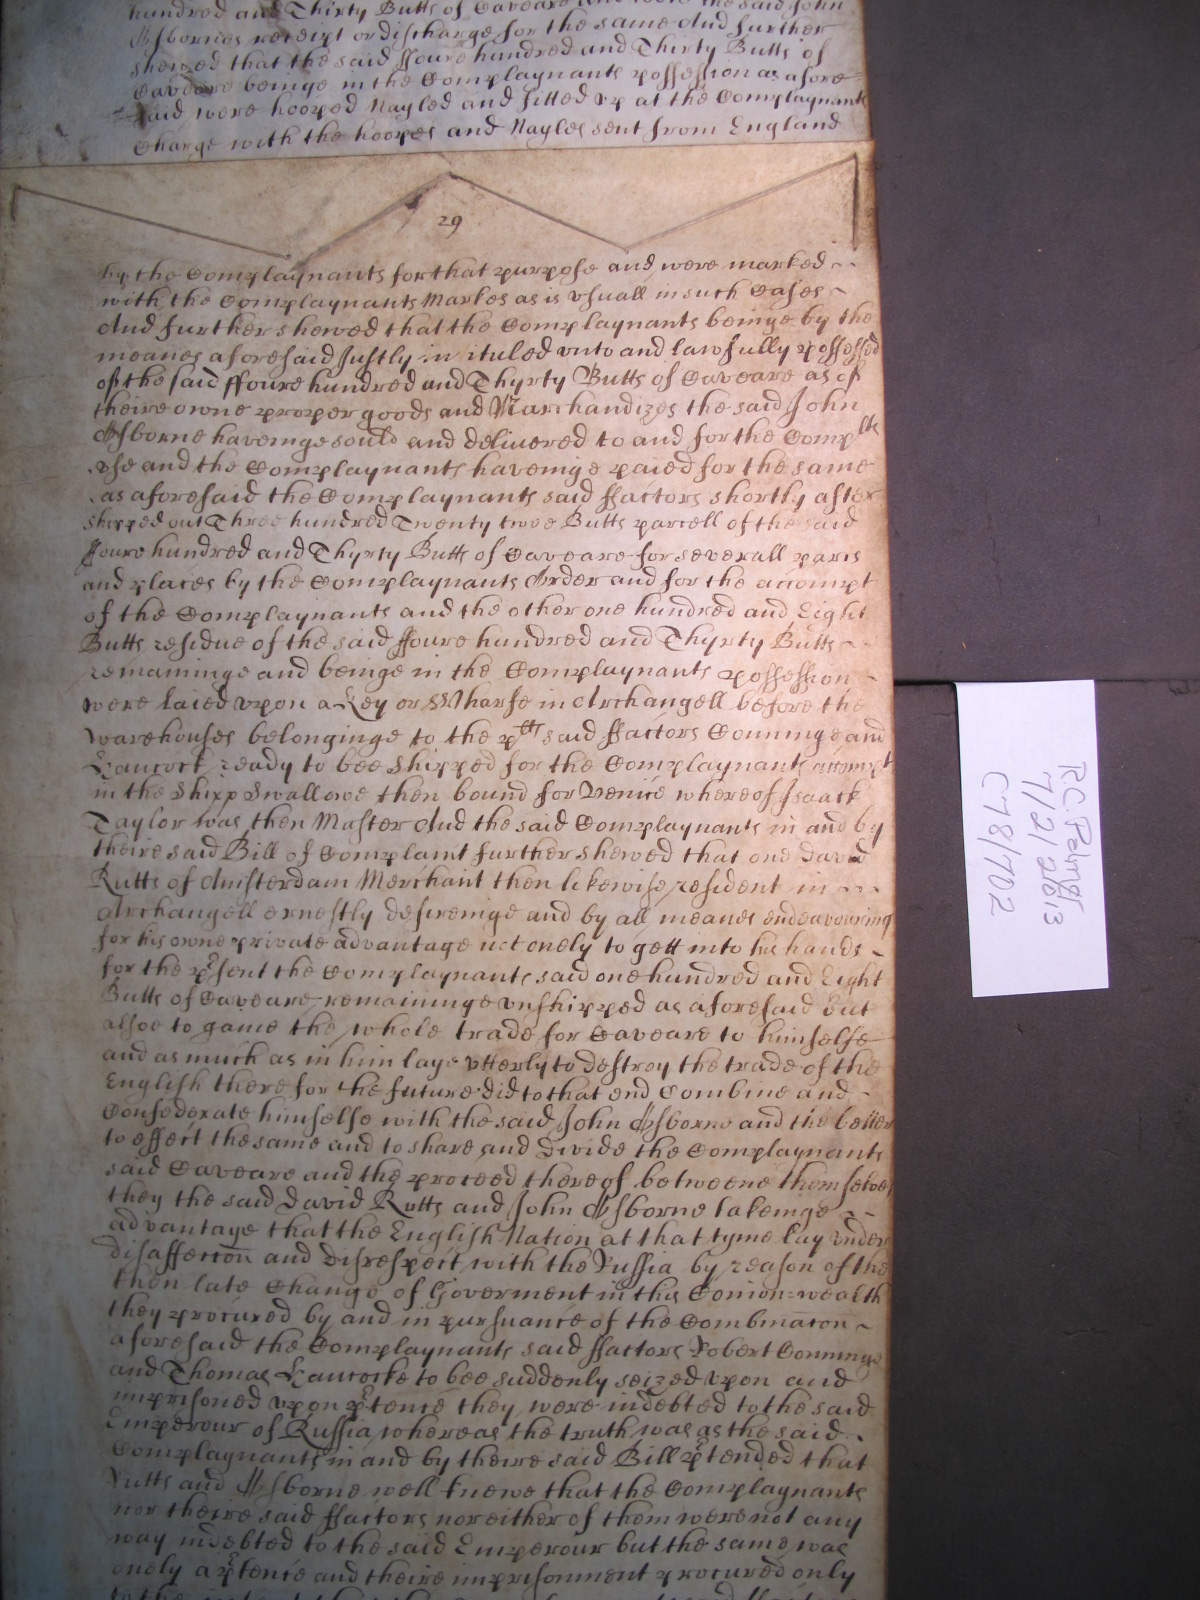 hundred and Thirty Butts of Caveare and tooke the said John
Osbornes receipt or discharge for the same And further
shewed that the said ffoure hundred and Thirty Butts of
Caveare beinge in the Complaynants possession as afore
said were hooped Nayled and filled up at the Complaynants
Charge with the hoopes and Nayles sent from England
29
by the Complaynants for that purpose and were marked
with the Complaynants Markes as is usuall in such Cases
And further shewed that the Complaynants beinge by the
meanes aforesaid Justly intituled unto and lawfully possessed
of the said ffoure hundred and Thyrty Butts of Caveare as of
theire owne proper goods and Marchandizes the said John
Osborne haveinge sould and delivered to and for the Complts
use and the Complaynants haveinge paied for the same
as aforesaid the Complaynants said ffactors shortly after
shipped out Three hundred Twenty twoe Butts parcell of the said
ffoure hundred and Thyrty Butts of Caveare for severall parts
and places by the Complaynants Order and for the accompt
of the Complaynants and the other one hundred and Eight
Butts residue of the said ffoure hundred and Thyrty Butts
remaininge and beinge in the Complaynants possession
were laied upon a Key or Wharfe in Archangell before the
warehouses belonginge to the plts said ffactors Conninge and
Hancock ready to bee shipped for the Complaynants accompt
in the Shipp Swallowe then bound for Venice whereof Isaack
Taylor was then Master And the said Complaynants in and by
theire said Bill of Complaint further shewed that one David
Rutts of Amsterdam Merchant then likewise resident in
Archangell ernestly desireinge and by all meanes endeavouring
for his owne private advantage not onely to gett into his hands
for the present the Complaynants said one hundred and Eight
Butts of Caveare remaininge unshipped as aforesaid But
alsoe to gaine the whole trade for Caveare to himselfe
and as much as in him laye utterly to destroy the trade of the
English there for the future did to that end Combine and
Confederate himselfe with the said John Osborne and the better
to effect the same and to share and Divide the Complaynants
said Caveare and the proceed thereof betweene themselves
they the said David Rutts and John Osborne takeinge
advantage that the English Nation at that tyme lay under
disaffeccon and disrespect with the Russia by reason of the
then late Change of Goverment in this Comon=wealth
they procured by and in pursuance of the Combinacon
aforesaid the Complaynants said ffactors Robert Conninge
and Thomas Hancocke to bee suddenly seized upon and
imprisoned upon ptence they were indebted to the said
Emperour of Russia whereas the truth was as the said
Complaynants in and by theire said Bill ptended that
Rutts and Osborne well knewe that the Complaynants
nor theire said ffactors nor either of them were not any
way indebted to the said Emperour but the same was
onely a ptence and theire imprisonment procured only
RC Palmer
7/2/2013
C78/702